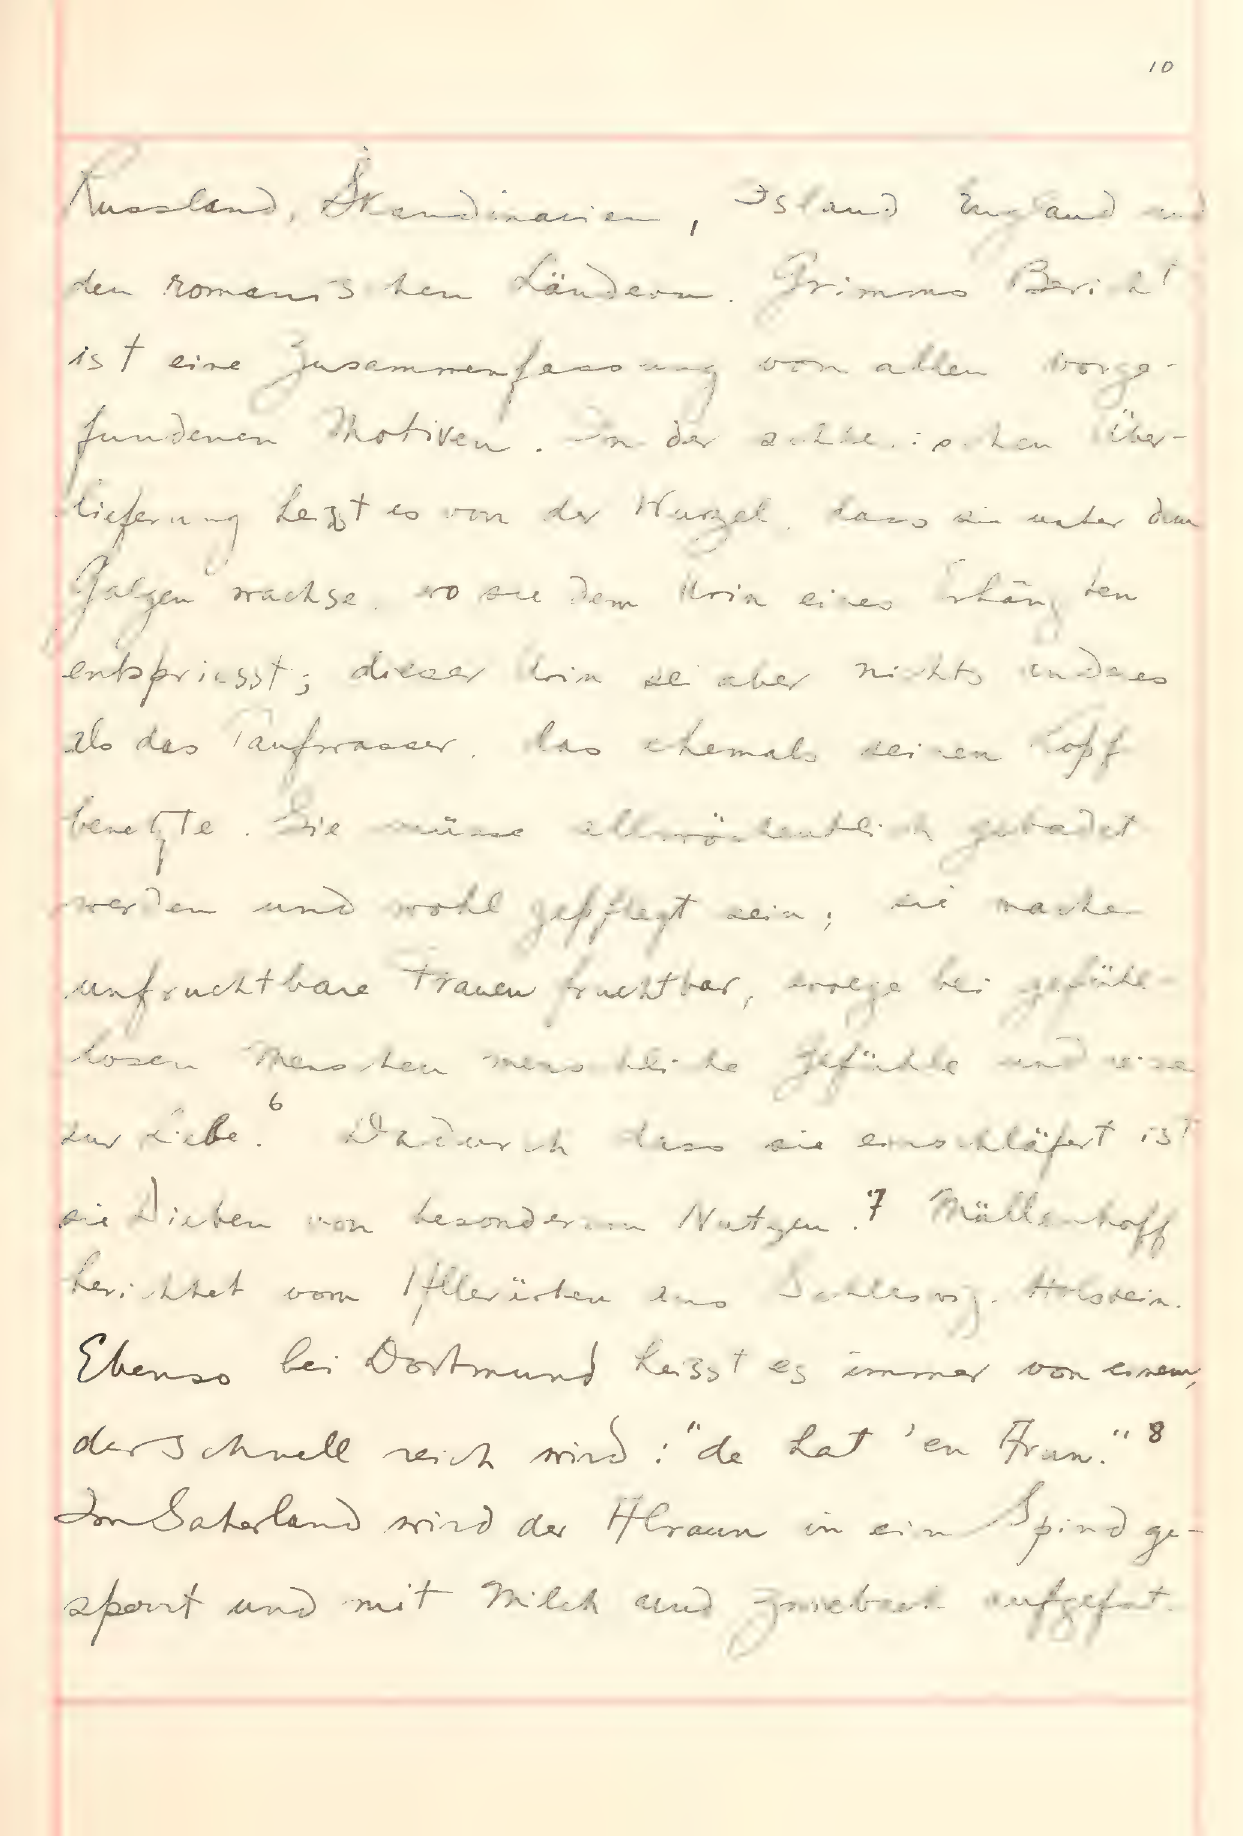 10
Russland, Skandinavien, Island England und
den romanischen Ländern. Grimms Bericht
ist eine Zusammenfassung von allen vorge-
fundenen Motiven. In der schlesischen Über-
lieferung heisst es von der Wurzel, dass sie unter dem
Galgen wachse, wo sie dem Urin eines Erhängten
entspriesst; dieser Urin sei aber nichts anderes
als das Taufwasser, das ehemals seinen Kopf
benetzte. Sie müsse allwöchentlich gebadet
werden und wohl gepflegt sein; sie mache
unfruchtbare Frauen fruchtbar, errege bei gefühl-
losen Menschen menschliche Gefühle und reize
zur Liebe.6 Dadurch dass sie einschläfert ist
sie Dieben von besonderem Nutzen.7 Müllenhoff
berichtet vom Allerürken aus Schleswig-Holstein.
Ebenso bei Dortmund heisst es immer von einem,
der schnell reich wird: "de hat 'en Arun." 8
Im Saterland wird der Alraun in ein Spind ge-
sperrt und mit Milch und Zwieback